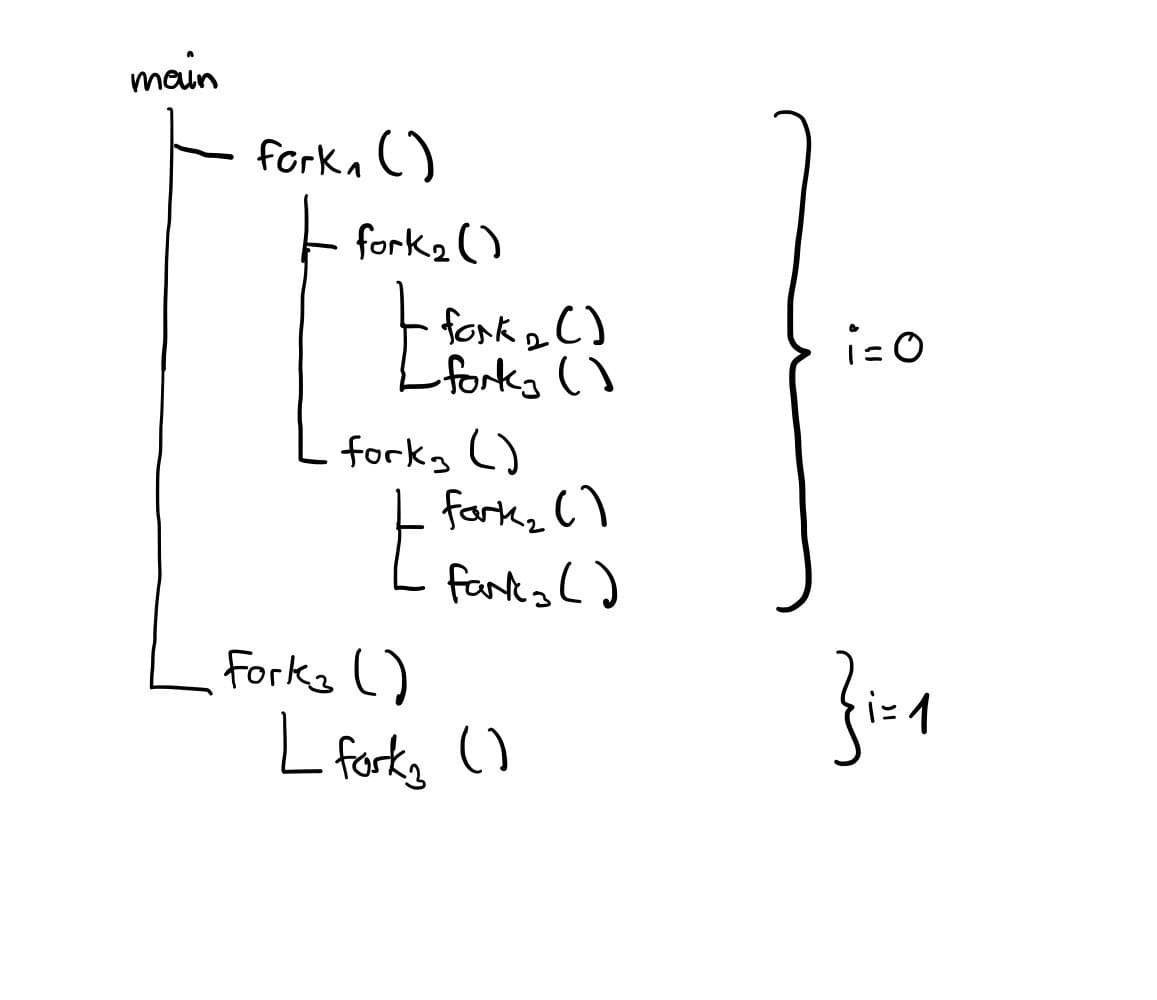 main
fork1()
fork2()
fork2()
fork3()
i=0
fork3()
fork2()
fork3()
fork3()
i=1
fork3()